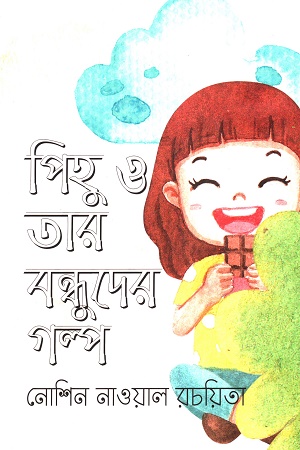 পিহু ও
তার
বন্ধুদের
গল্প
নোশিন নাওয়াল রচয়িতা